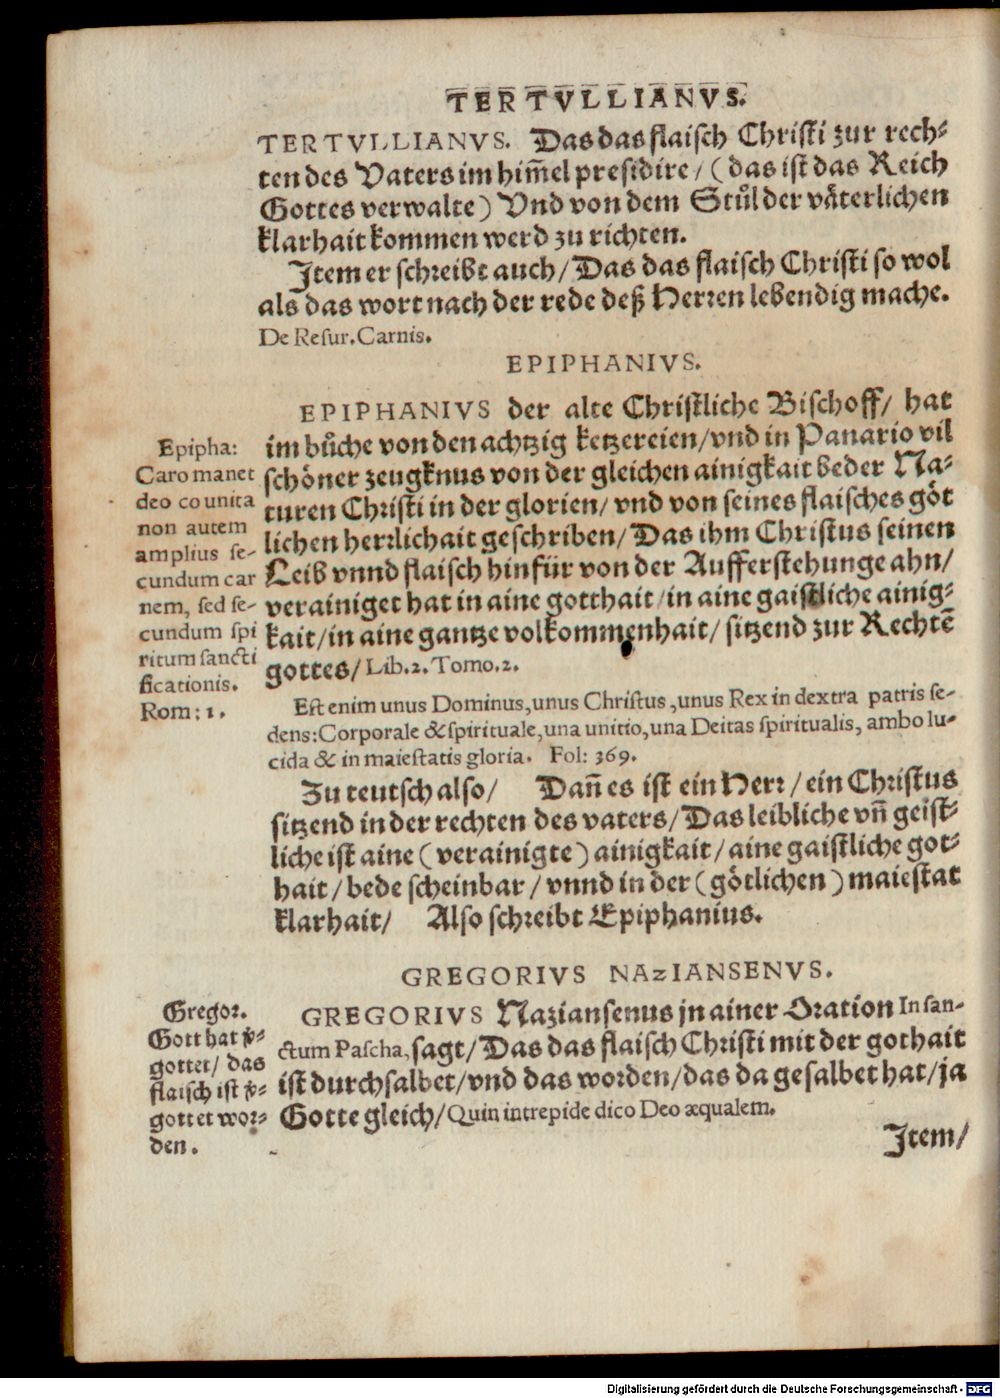 TERTVLLIANVS.
TERTVLLIANVS. Das das flaisch Christi zur rech-
ten des Vaters im him̃el presidire/ (das ist das Reich
Gottes verwalte) Vnd von dem Stůl der våterlichen
klarhait kommen werd zu richten.
Item er schreibt auch/ Das das flaisch Christi so wol
als das wort nach der rede deß Herren lebendig mache.
De Resur. Carnis.
EPIPHANIVS.
EPIPHANIVS der alte Christliche Bischoff/ hat
im bůche von den achtzig ketzereien/ vnd in Panario vil
schöner zeugknus von der gleichen ainigkait beder Na-
turen Christi in der glorien/ vnd von seines flaisches göt
lichen herrlichait geschriben/ Das ihm Christus seinen
Leib vnnd flaisch hinfür von der Aufferstehunge ahn/
verainiget hat in aine gotthait/ in aine gaistliche ainig-
kait/ in aine gantze volkommenhait/ sitzend zur Rechtē
gottes/ Lib. 2. Tomo. 2.
Epipha:
Caro manet
deo counita
non autem
amplius se-
cundum car
nem, sed se-
cundum spi
ritum sancti
ficationis.
Rom: 1.
Est enim unus Dominus, unus Christus, unus Rex in dextra patris se-
dens: Corporale & spirituale, una unitio, una Deitas spiritualis, ambo lu-
cida & in maiestatis gloria. Fol: 369.
Zu teutsch also/ Dañ es ist ein Herr/ ein Christus
sitzend in der rechten des vaters/ Das leibliche vñ geist-
liche ist aine (verainigte) ainigkait/ aine gaistliche got-
hait/ bede scheinbar/ vnnd in der (götlichen) maiestat
klarhait/ Also schreibt Epiphanius.
GREGORIVS NAZIANSENVS.
GREGORIVS Naziansenus jn ainer Oration In san-
ctum Pascha, sagt/ Das das flaisch Christi mit der gothait
ist durchsalbet/ vnd das worden/ das da gesalbet hat/ ja
Gotte gleich/ Quin intrepide dico Deo æqualem.
Gregor.
Gott hat v̄-
gottet/ das
flaisch ist v̄-
gottet wor-
den.
Item/
Digitalisierung gefördert durch die Deutsche Forschungsgemeinschaft - DFG